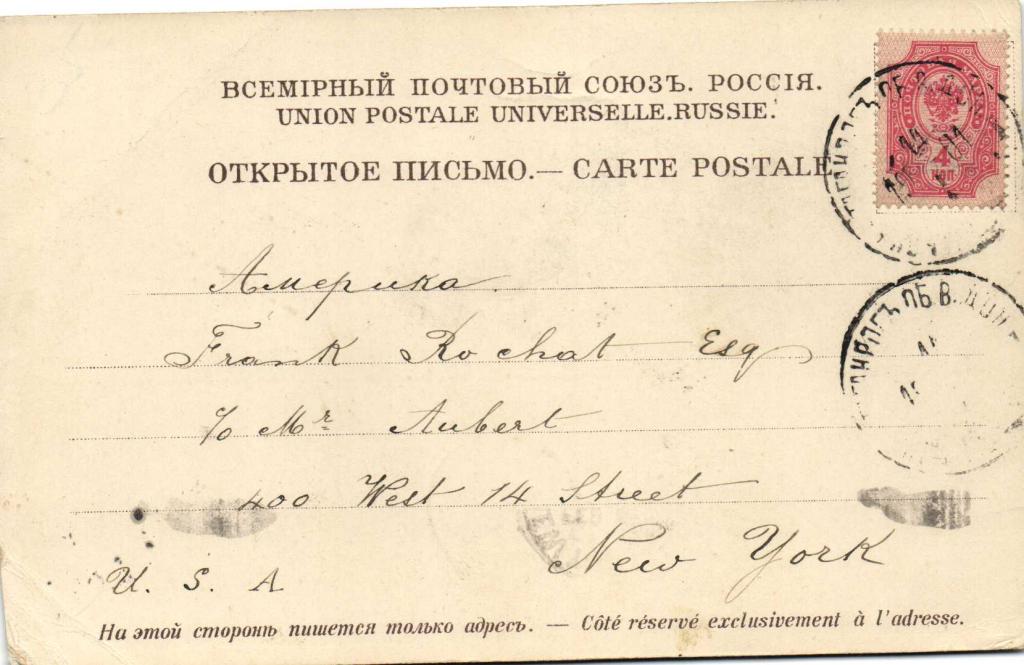 ВСЕМІРНЫЙ ПОЧТОВЫЙ СОЮЗЪ. РОССІЯ.
UNION POSTALE UNIVERSELLE.RUSSIE.
ОТКРЫТОЕ ПИСЬМО.— CARTE POSTALE
4
КОП
ОБ. В. ДОН
Америка.
Frank Rochat Esq
c/o Mr Aubert
400 West 14 Street
New York
U. S. A
На этой сторонѣ пишется только адресъ. — Côté réservé exclusivement à l'adresse.